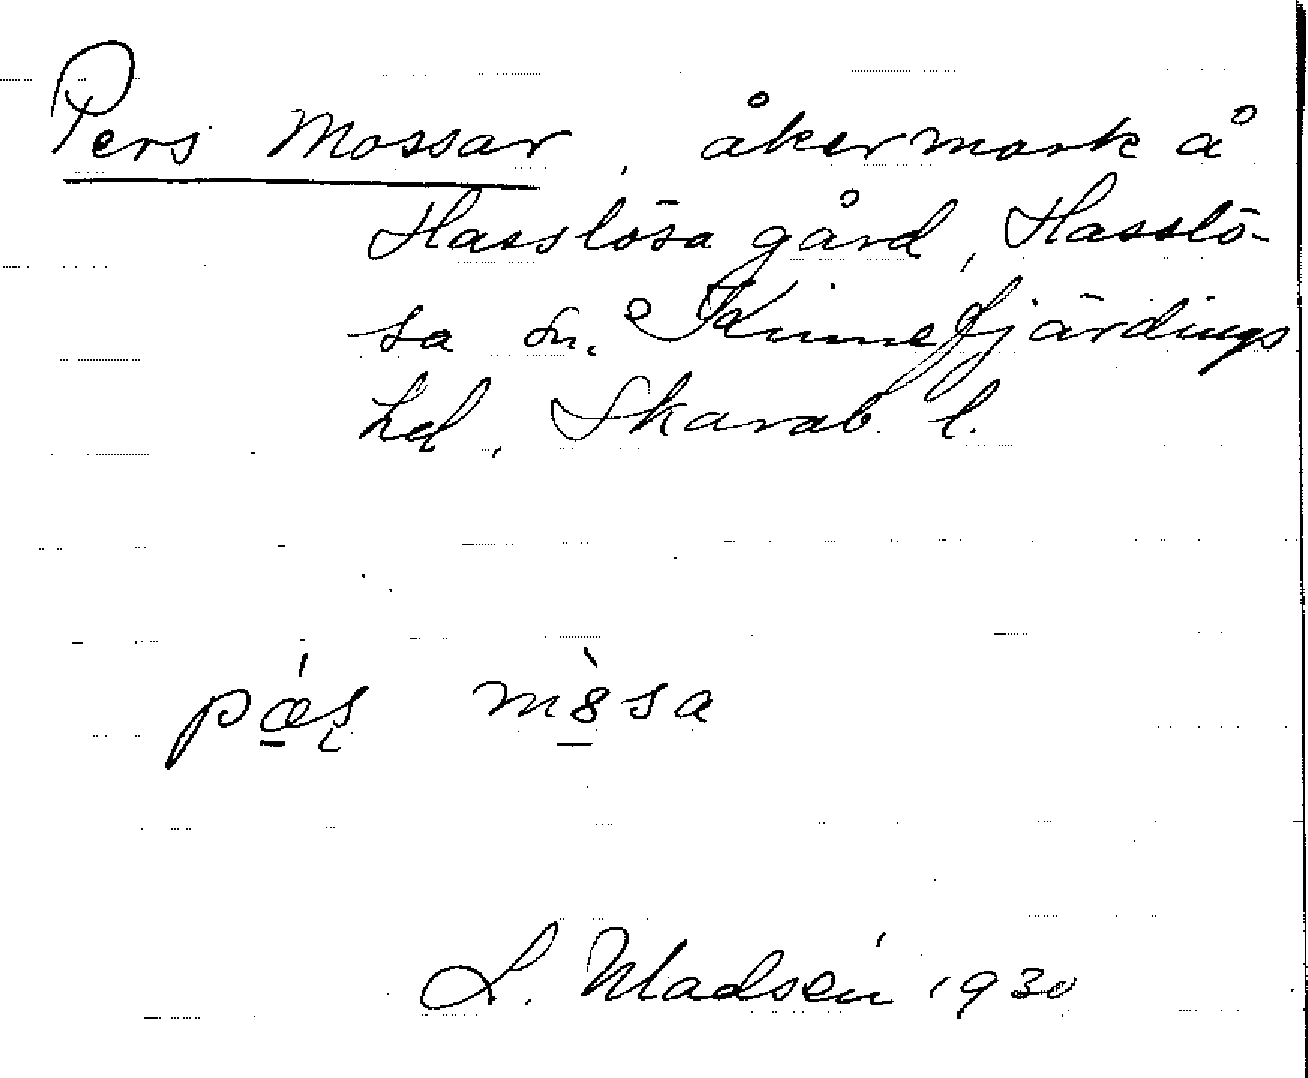 Pers Mossar, åkermark å
Hasslösa gård, Hasslö-
sa sn. Kinnefjärdings
hd, Skarab. l.
pǽ̱ʂ mò̱sa
L. Madsén 1930